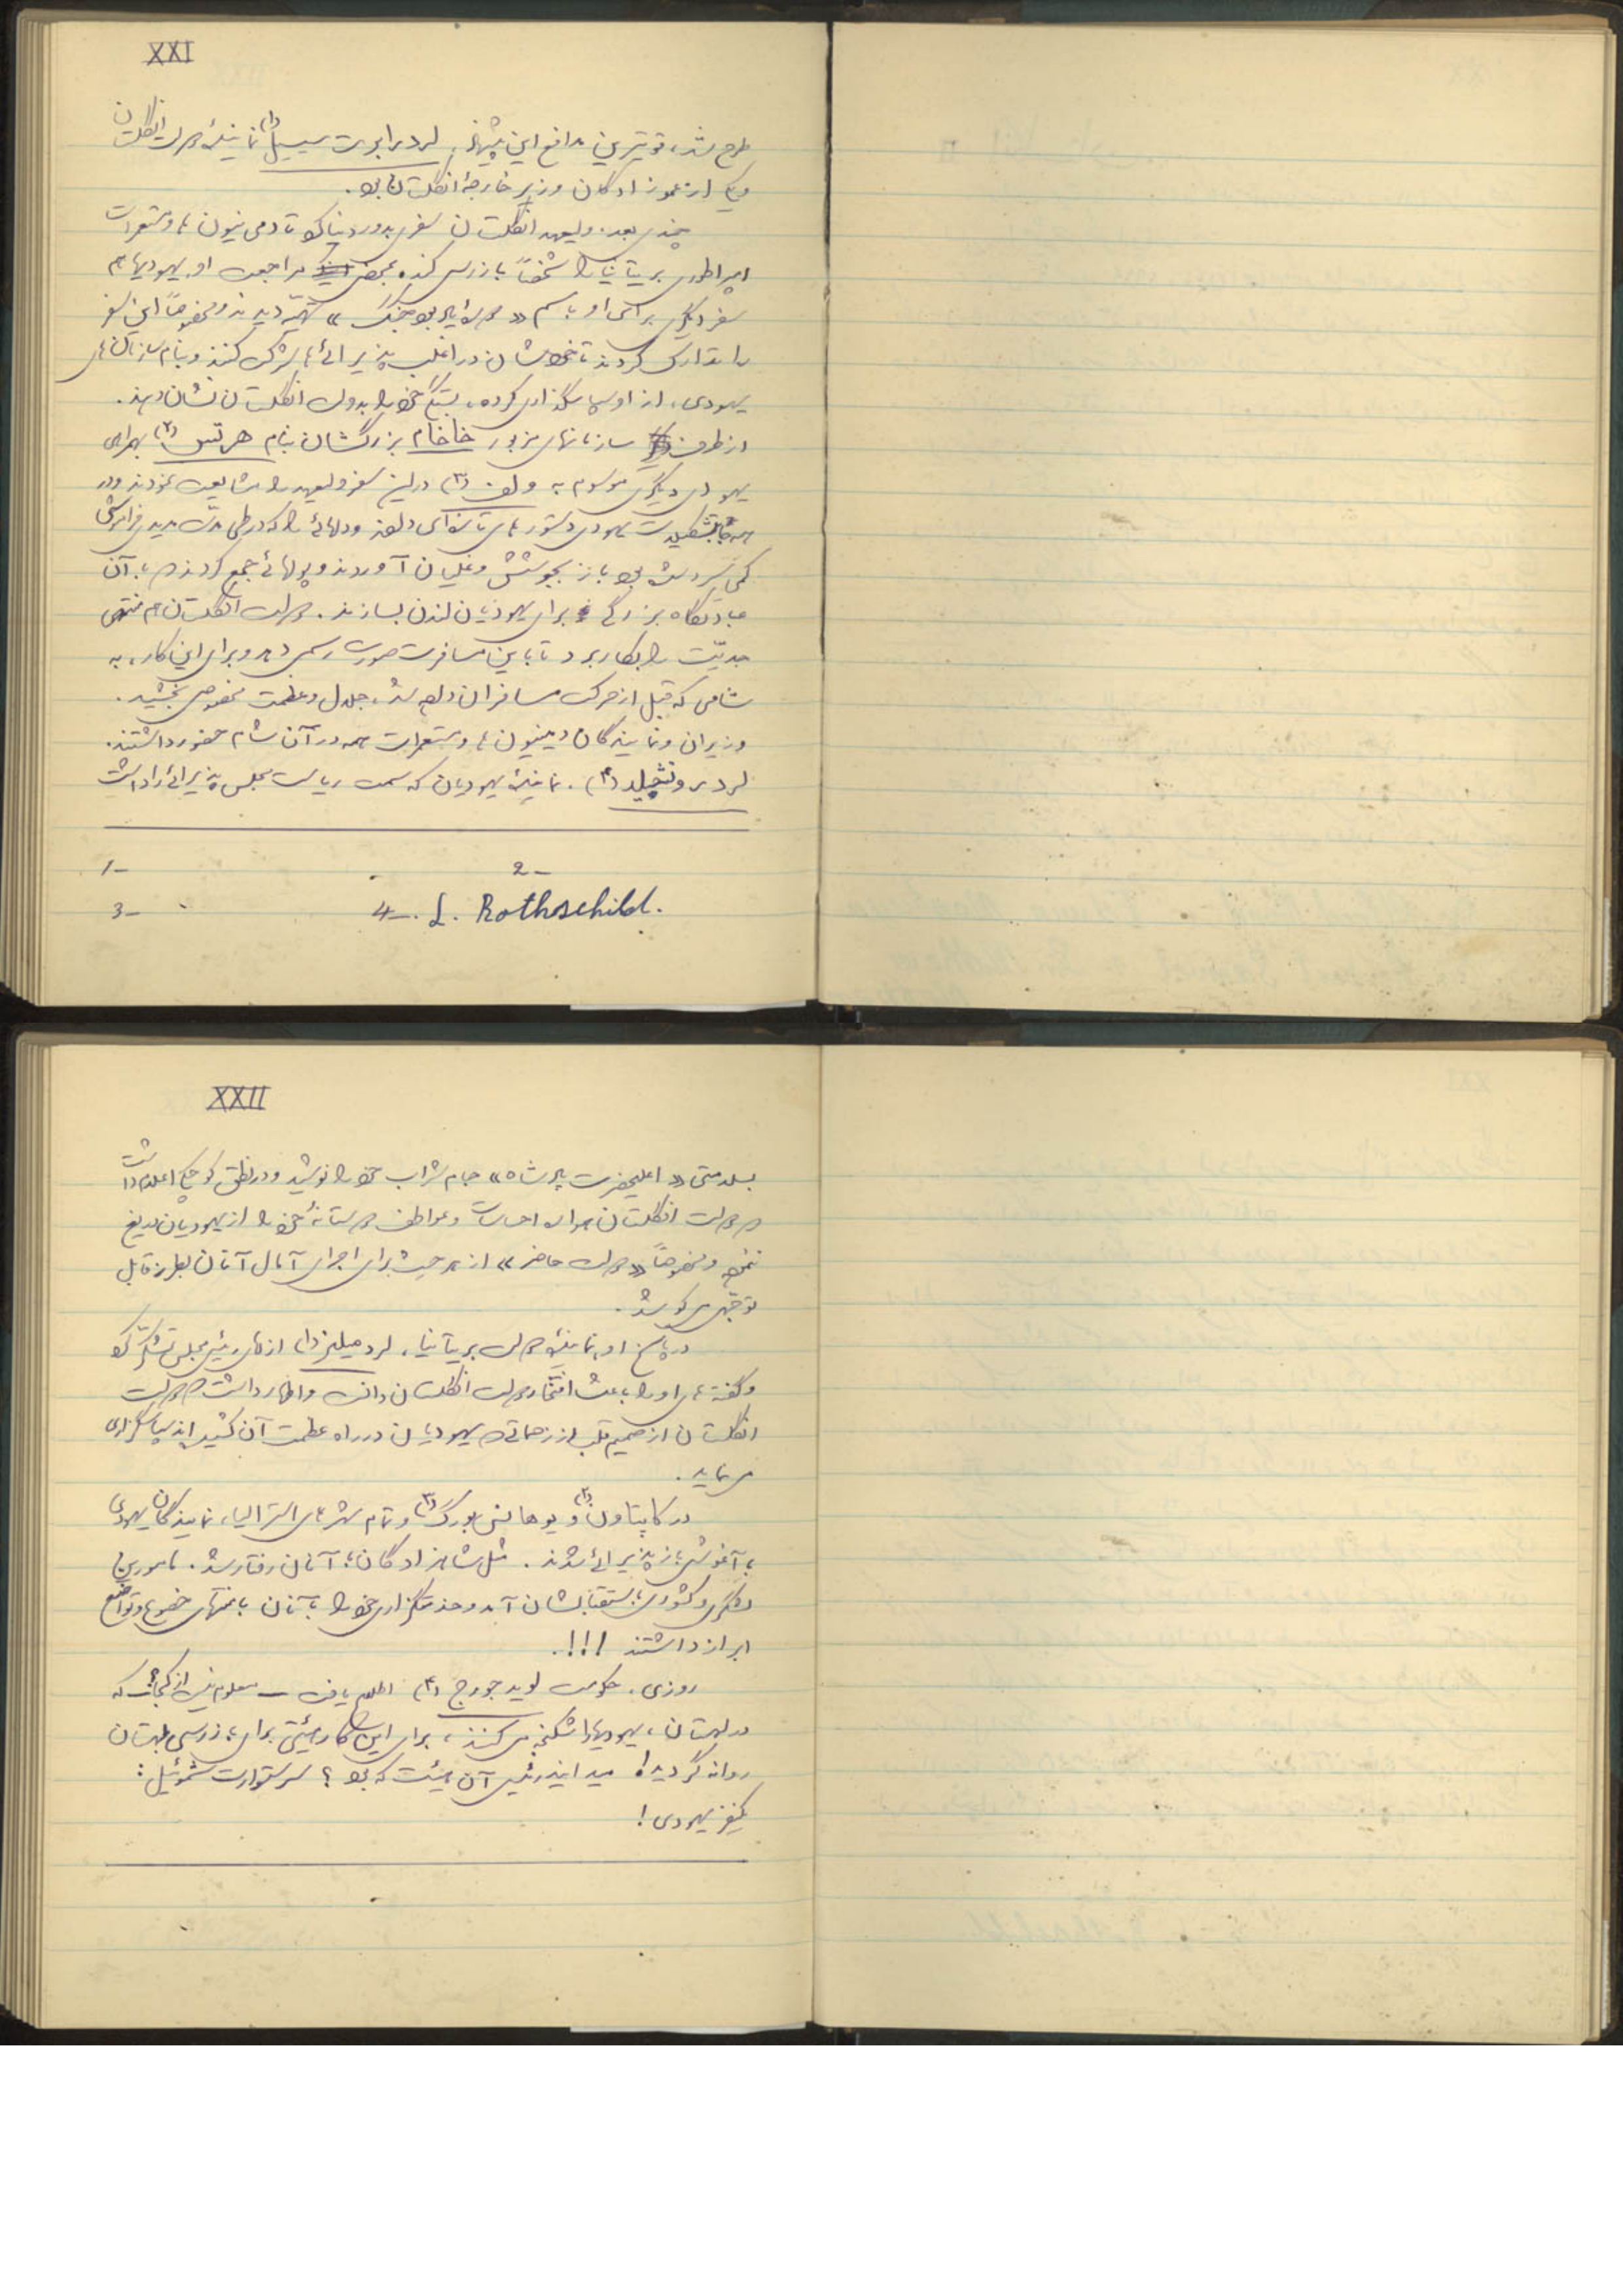 XXI
طرح شد، قویترین مدافع این پیشنهاد، لرد رابرت سیسیل (۱) نمایندهٔ دولت انگلستان
و یکی از عموزادگان وزیر خارجهٔ انگلستان بود.
چندی بعد، ولیعهد انگلستان سفری بدور دنیا کرد تا دومینیون ها و مستعمرات
امپراطوری بریتانیا را شخصاً بازرسی کند. بمحض مراجعت او، یهودیها هم
سفر دیگری برای او باسم « » تهیّه دیدند و مخصوصاً این سفر
را تدارک کردند تا خودشان در اغلب پذیرائی ها شرکت کنند و بنام سازمان های
یهودی، از او سپاسگذاری کرده، بستگی خود را بدولت انگلستان نشان دهند.
از طرف سازمانهای مزبور خاخام بزرگشان بنام هرتس (۲) بهمراهی
یهودی دیگری موسوم به ولف (۳) در این سفر ولیعهد را مشایعت نمودند و در
همه جا یهودی دستورهای تازه‌ای دادند و دلهائی را که در طی مدّت مدید فراموشی
کمی سرد شده بود باز بجوشش و غلیان آوردند و پولهائی جمع کردند که با آن
عبادتگاه بزرگی برای یهودیان لندن بسازند. دولت انگلستان هم منتهی
جدیّت را بکار برد تا باین مسافرت صورت رسمی دهد و برای این کار، به
شامی که قبل از حرکت مسافران داده شد، جلال و عظمت مخصوصی بخشید.
وزیران و نمایندگان دمینیون ها و مستعمرات همه در آن شام حضور داشتند.
لرد روتشیلد (۴)، نمایندهٔ یهودیان که سمت ریاست مجلس پذیرائی را داشت
1-
2-
3-
4- L. Rothschild.
XXII
بسلامتی «اعلیحضرت پادشاه» جام شراب خود را نوشید و در نطق کوچکی اعلام داشت
که دولت انگلستان همواره احساسات و عواطف دوستانهٔ خود را از یهودیان دریغ
ننموده و مخصوصاً «دولت حاضر» از هر حیث برای اجرای آمال آنان بطرز قابل
توجّهی میکوشد.
در پاسخ او، نمایندهٔ دولت بریتانیا، لرد میلنر (۱) از رئیس مجلس تشکّر کرد
و گفته های او را باعث افتخار دولت انگلستان دانست و اظهار داشت که دولت
انگلستان از صمیم قلب از زحماتی که یهودیان در راه عظمت آن کشیده اند سپاسگزاری
می نماید.
در کاپتاون (۲) و یوهانس بورگ (۳) و تمام شهرهای استرالیا، نمایندگان یهودی
با آغوش باز پذیرائی شدند. مثل شاهزادگان با آنان رفتار شد. مامورین
لشگری و کشوری باستقبالشان آمد و خدمتگزاری خود را بآنان با منتهای خضوع و تواضع
ابراز داشتند !!!.
روزی، حکومت لوید جورج (۴) اطلاع یافت ــ معلوم نیست از کجا؟ ــ که
در لهستان، یهودیها را شکنجه می کنند، برای این کار هیئتی برای بازرسی لهستان
روانه گردید! میدانید رئیس آن هیئت که بود؟ سر ستوارت شموئیل:
یکنفر یهودی!